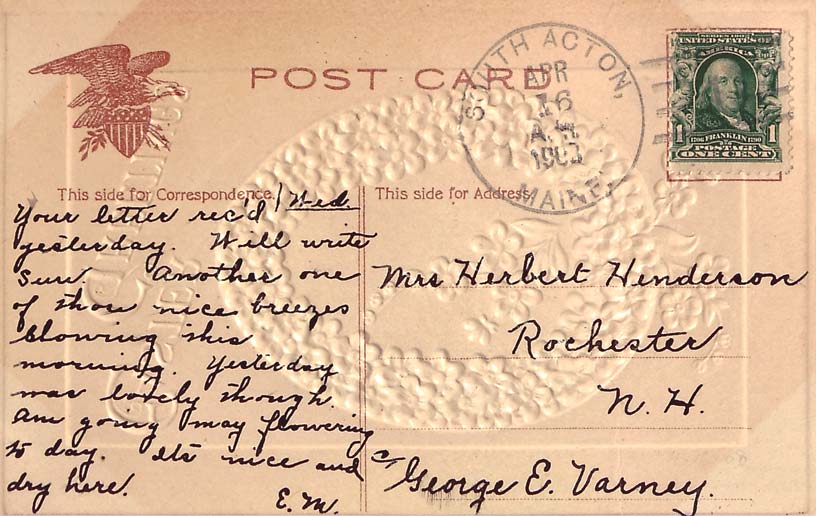 POST CARD
SOUTH ACTON,
APR
16
A.M.
MAINE.
SERIES 1902
UNITED STATES OF
AMERICA
1 1706 FRANKLIN 1790 1
POSTAGE
ONE CENT
This side for Correspondence.
Wed.
Your letter rec'd
yesterday. Will write
Sun. Another one
of those nice breezes
blowing this
morning. Yesterday
was lovely though.
Am going may flowering
to day. Its nice and
dry here.
E. M.
This side for Address.
Mrs Herbert Henderson
Rochester
N. H.
c/ George E. Varney.